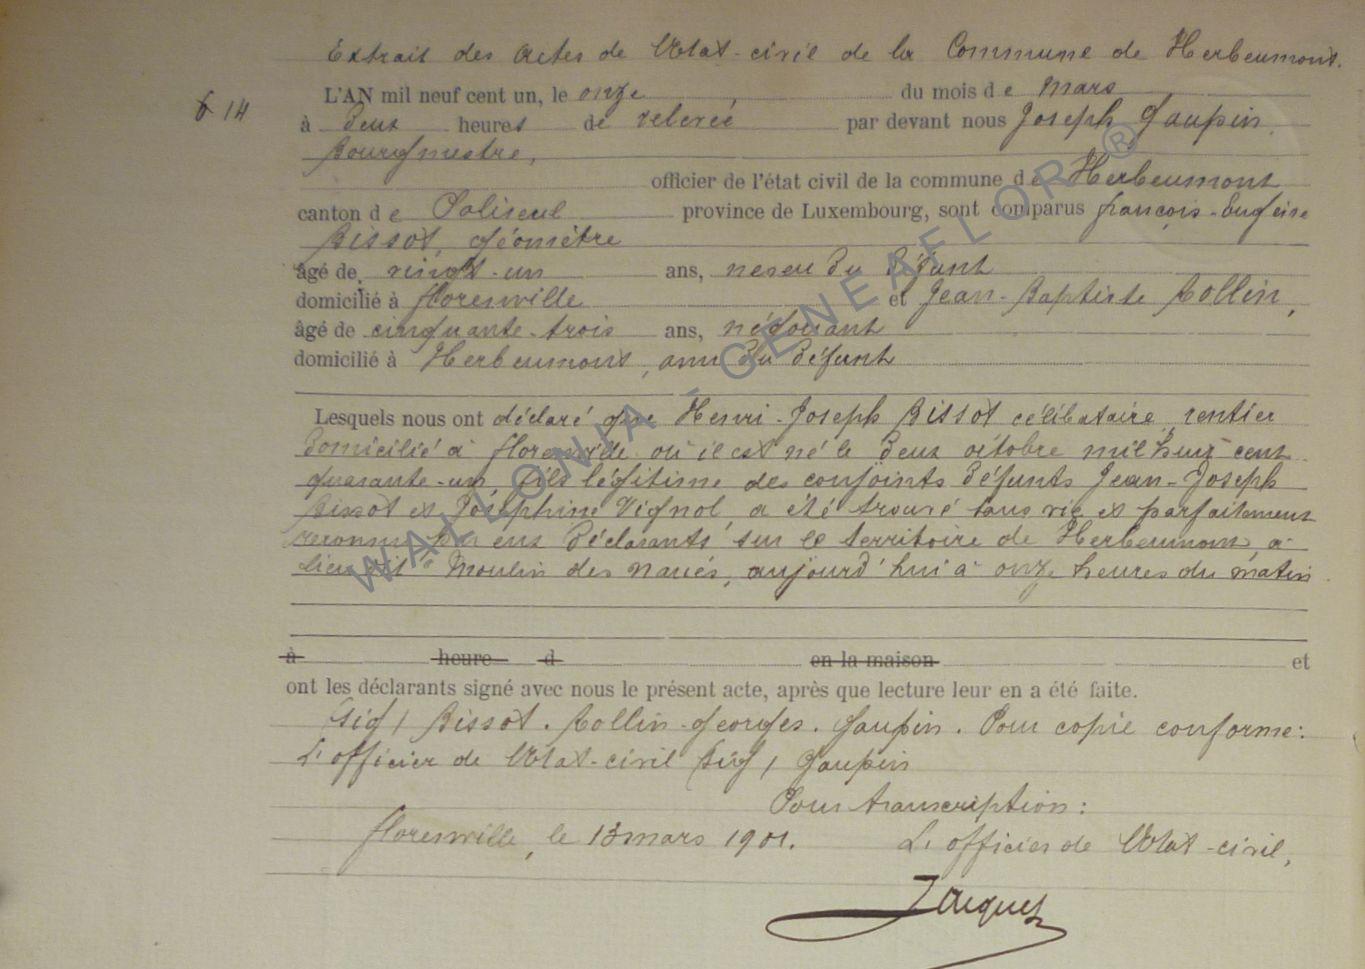 Extrait des Actes de l'Etat-civil de la Commune de Herbeumont.
14
L'AN mil neuf cent un, le onze du mois de mars
à deux heures de relevée par devant nous Joseph Gaupin,
Bourgmestre,
officier de l'état civil de la commune de Herbeumont
canton de Paliseul province de Luxembourg, sont comparus françois-Eugène
Bissot, géomètre
âgé de vingt-un ans, neveu du défunt
domicilié à florenville et Jean-Baptiste Collin,
âgé de cinquante-trois ans, négociant
domicilié à Herbeumont, ami du défunt
Lesquels nous ont déclaré que Henri-Joseph Bissot célibataire, rentier
domicilié à florenville où il est né le deux octobre mil huit cent
quarante-un, fils légitime des conjoints défunts Jean-Joseph
Bissot et Joséphine Vignol, a été trouvé sans vie et parfaitement
reconnu par eux déclarants sur le territoire de Herbeumont, à
lieu dit "Moulin des naués, aujourd'hui à onze heures du matin
à heure d en la maison et
ont les déclarants signé avec nous le présent acte, après que lecture leur en a été faite.
(Sig) Bissot. Collin-Georges. Gaupin. Pour copie conforme:
L'officier de l'Etat-civil (sig) Gaupin
Pour transcription:
florenville, le 13 mars 1901. L'officier de l'Etat-civil,
Jacquet
WALLONIA - GENEAFLOR ®